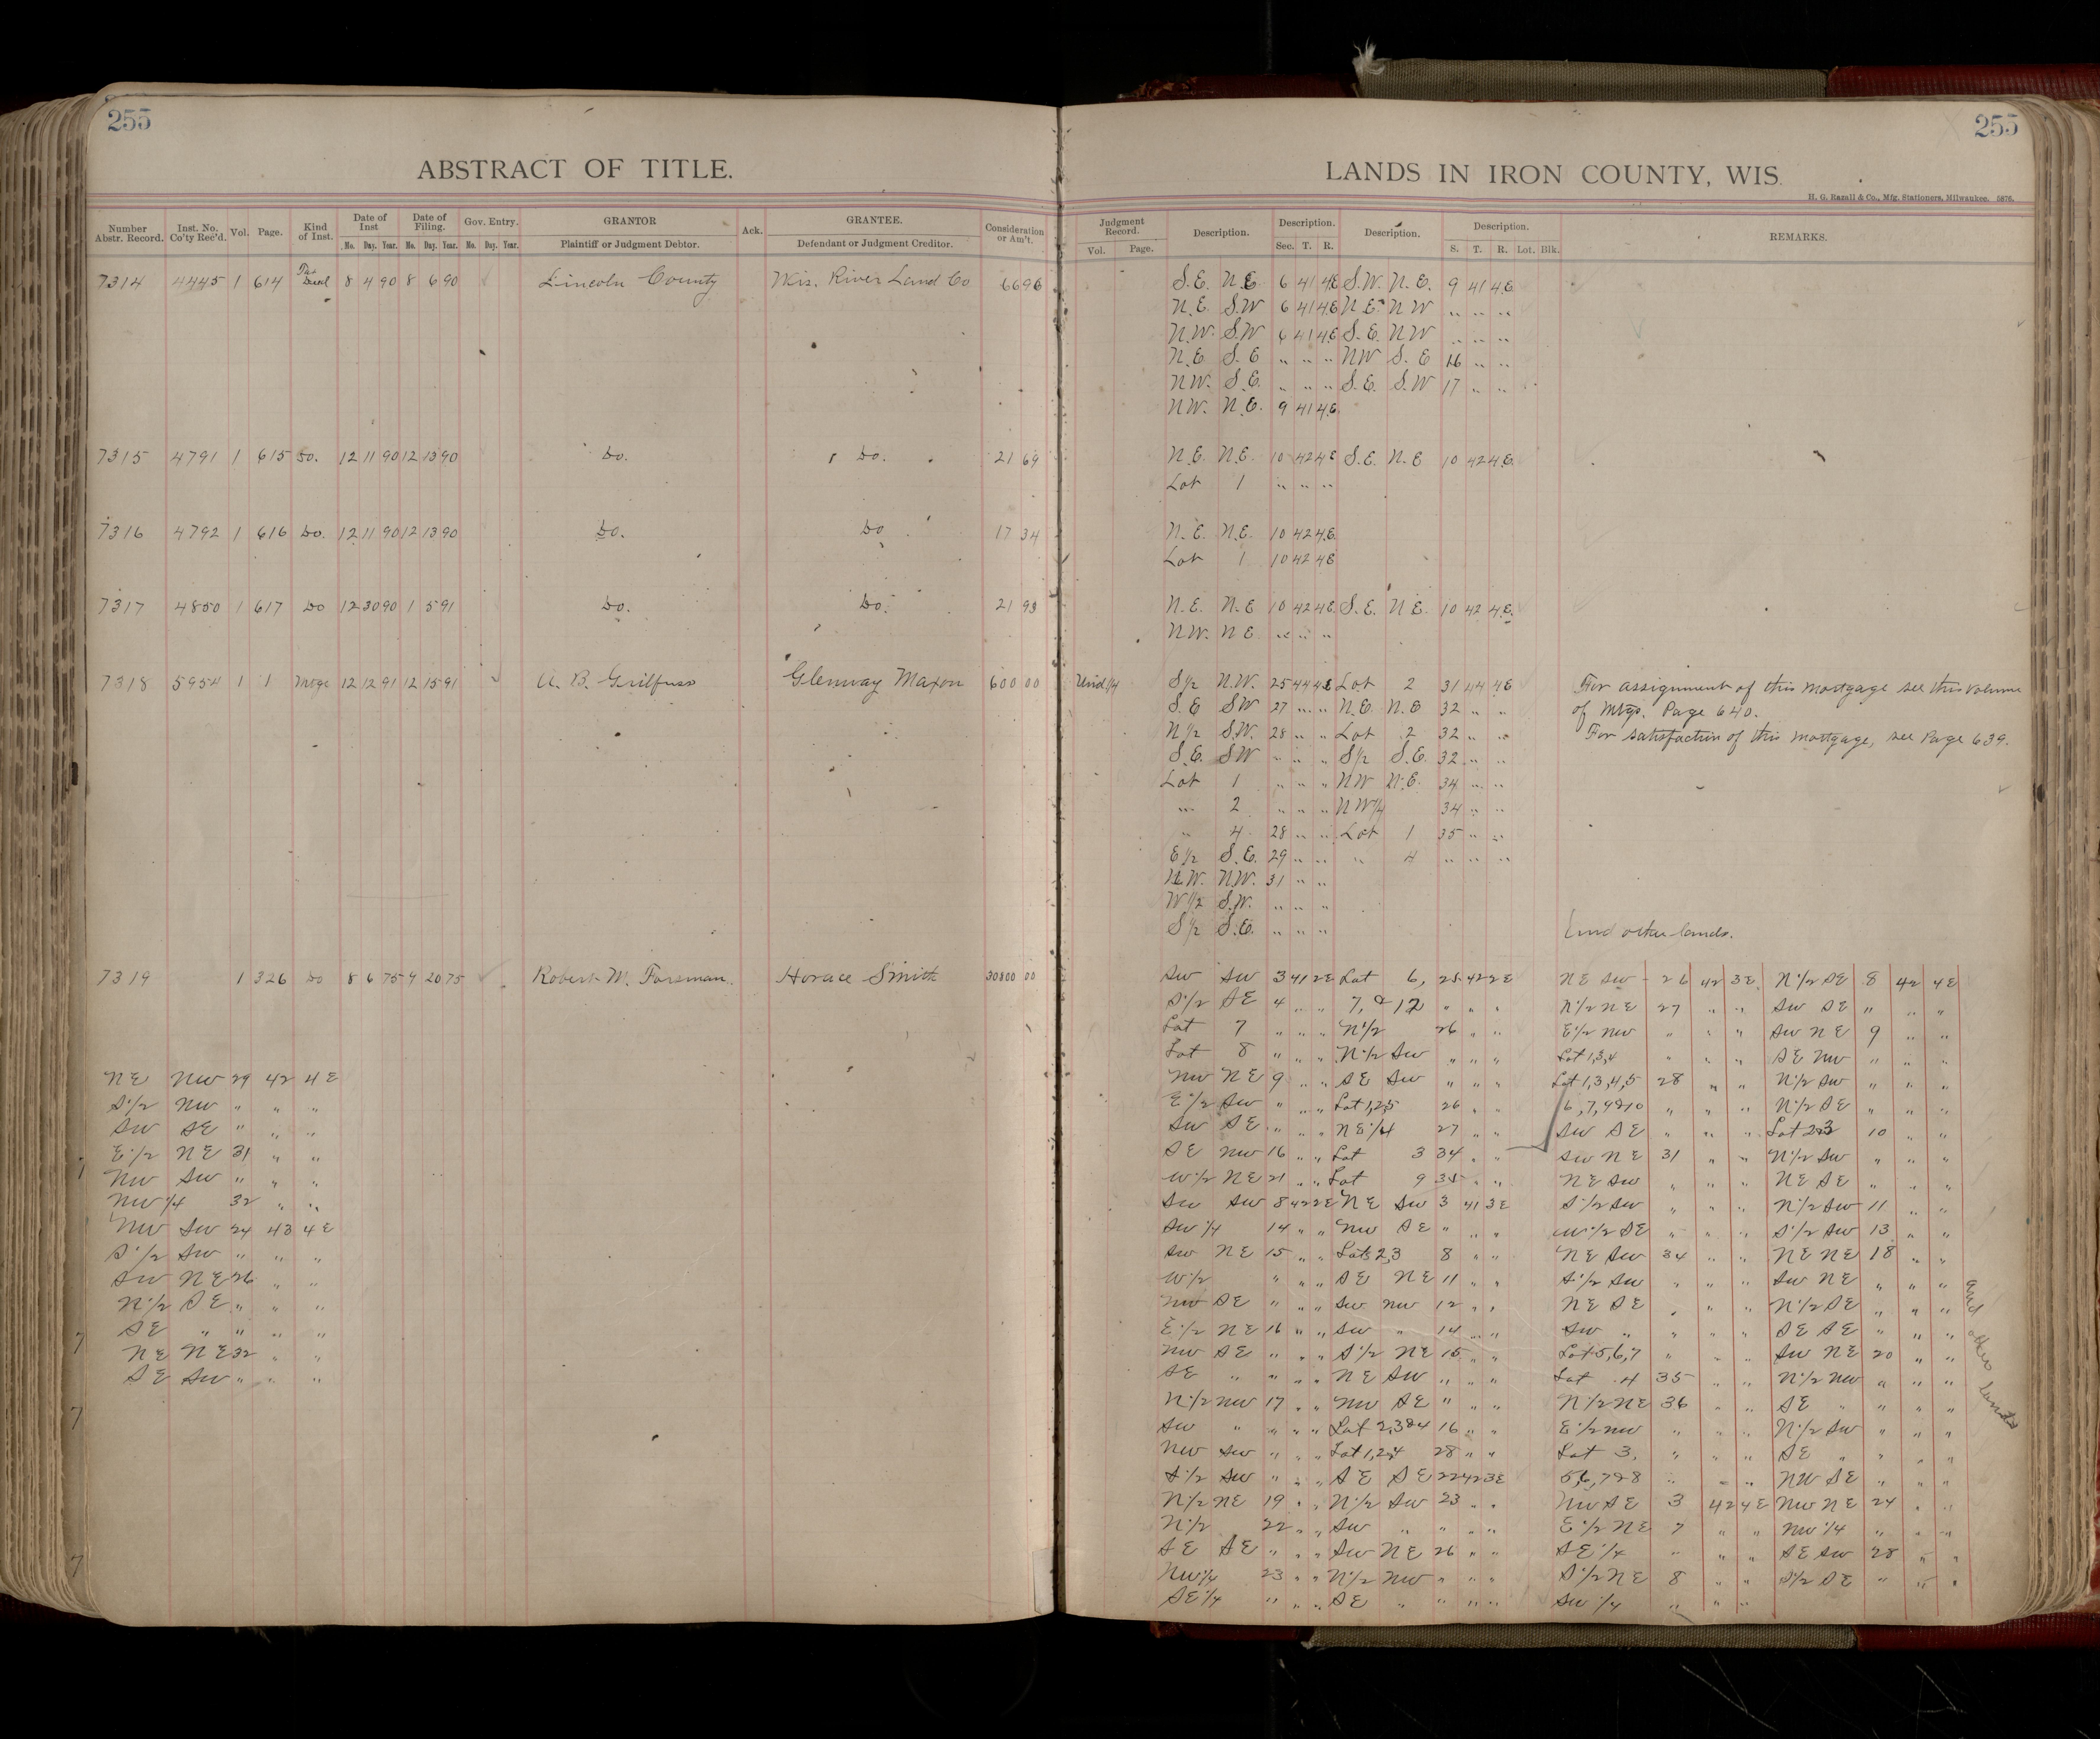 255
ABSTRACT OF TITLE.
Number Abstr. Record. Inst. No. Co'ty Rec'd. Vol. Page. Kind of Inst. Date of Inst Mo. Day. Year. Date of Filing. Mo. Day. Year. Gov. Entry. Mo. Day. Year. GRANTOR Plaintiff or Judgment Debtor. Ack. GRANTEE. Defendant or Judgment Creditor. Consideration or Am't.
7314 4445 1 614 Tax Deed 8 4 90 8 6 90 Lincoln County Wis. River Land Co 66 96
7315 4791 1 615 Do. 12 11 90 12 13 90 Do. Do. 21 69
7316 4792 1 616 Do. 12 11 90 12 13 90 Do. Do 17 34
7317 4850 1 617 Do 12 30 90 1 5 91 Do. Do. 21 93
7318 5954 1 1 Mtge 12 12 91 12 15 91 A. B. Glenway Maxon 600 00
7319 1 326 Do 8 6 75 9 20 75 Robert M. Forsman. Horace Smith 30800 00
NE NW 29 42 4E
S 1/2 NW " " "
SW SE " " "
E 1/2 NE 31 " "
NW SW " " "
NW 1/4 32 " "
NW SW 24 43 4E
S 1/2 SW " " "
SW NE 26 " "
N 1/2 SE " " "
SE " " " "
NE NE 32 " "
SE SW " " "
255
LANDS IN IRON COUNTY, WIS.
H. G. Razall & Co., Mfg. Stationers, Milwaukee. 5876.
Judgment Record. Vol. Page. Description. Description. Sec. T. R. Description. Description. S. T. R. Lot. Blk. REMARKS.
S.E. N.E. 6 41 4E S.W. N.E. 9 41 4E.
N.E. S.W 6 41 4E N.E. N W " " "
N.W. S.W 6 41 4E S.E. N W " " "
N.E. S.E " " " NW S.E 16 " "
NW. S.E. " " " S.E. S.W 17 " "
NW. N.E. 9 41 4E.
N.E. N.E. 10 42 4E S.E. N.E 10 42 4E.
Lot 1 " " "
N.E. N.E. 10 42 4E.
Lot 1 10 42 4E
N.E. N.E 10 42 4E. S.E. N E. 10 42 4E.
NW. N E. " " "
Und 1/4 S 1/2 N.W. 25 44 4E Lot 2 31 44 4E For assignment of this mortgage see this volume
S.E SW 27 " " N.E. N.E 32 " " of Mtgs. Page 640.
N 1/2 S.W. 28 " " Lot 2 32 " " For satisfaction of this mortgage, see Page 639.
S.E. SW " " " S 1/2 S.E. 32 " "
Lot 1 " " " NW N.E. 34 " "
" 2 " " " N W 1/4 34 " "
" 4 28 " " Lot 1 35 " "
E 1/2 S.E. 29 " " " 4 " " "
N.W. N.W. 31 " "
W 1/2 S.W. " " "
S 1/2 S.E. " " " and other lands.
SW SW 3 41 2E Lot 6, 25 42 2E NE SW 26 42 3E N 1/2 SE 8 42 4E
S 1/2 SE 4 " " 7, & 12 " " " N 1/2 NE 27 " " SW SE " " "
Lot 7 " " " N 1/2 26 " " E 1/2 NW " " " SW NE 9 " "
Lot 8 " " " N 1/2 SW " " " Lot 1,3,4 " " " SE NW " " "
NW NE 9 " " SE SW " " " Lot 1,3,4,5 28 " " N 1/2 SW " " "
E 1/2 SW " " " Lot 1,2,5 26 " " 6,7,9&10 " " " N 1/2 SE " " "
SW SE " " " NE 1/4 27 " " SW SE " " " Lot 2&3 10 " "
SE NW 16 " " Lot 3 34 " " SW NE 31 " " N 1/2 SW " " "
W 1/2 NE 21 " " Lot 9 35 " " NE SW " " " NE SE " " "
SW SW 8 42 2E NE SW 3 41 3E S 1/2 SW " " " N 1/2 SW 11 " "
SW 1/4 14 " " NW SE " " " W 1/2 SE " " " S 1/2 SW 13 " "
SW NE 15 " " Lots 2,3 8 " " NE SW 34 " " NE NE 18 " "
W 1/2 " " " SE NE 11 " " S 1/2 SW " " " SW NE " " "
NW SE " " " SW NW 12 " " NE SE " " " N 1/2 SE " " "
E 1/2 NE 16 " " SW " 14 " " SW " " " " SE SE " " "
NW SE " " " S 1/2 NE 15 " " Lot 5,6,7 " " " SW NE 20 " "
SE " " " " NE SW " " " Lot 4 35 " " N 1/2 NW " " "
N 1/2 NW 17 " " NW SE " " " N 1/2 NE 36 " " SE " " " "
SW " " " " Lot 2,3&4 16 " " E 1/2 NW " " " N 1/2 SW " " "
NW SW " " " Lot 1,2,4 28 " " Lot 3, " " " SE " " " "
S 1/2 SW " " " SE SE 22 42 3E 5,6,7&8 " " " NW SE " " "
N 1/2 NE 19 " " N 1/2 SW 23 " " NW SE 3 42 4E NW NE 24 " "
N 1/2 22 " " SW " " " " E 1/2 NE 7 " " NW 1/4 " " "
SE SE " " " SW NE 26 " " SE 1/4 " " " SE SW 28 " "
NW 1/4 23 " " N 1/2 NW " " " S 1/2 NE 8 " " S 1/2 SE " " "
SE 1/4 " " " SE " " " " SW 1/4 " " "
and other lands